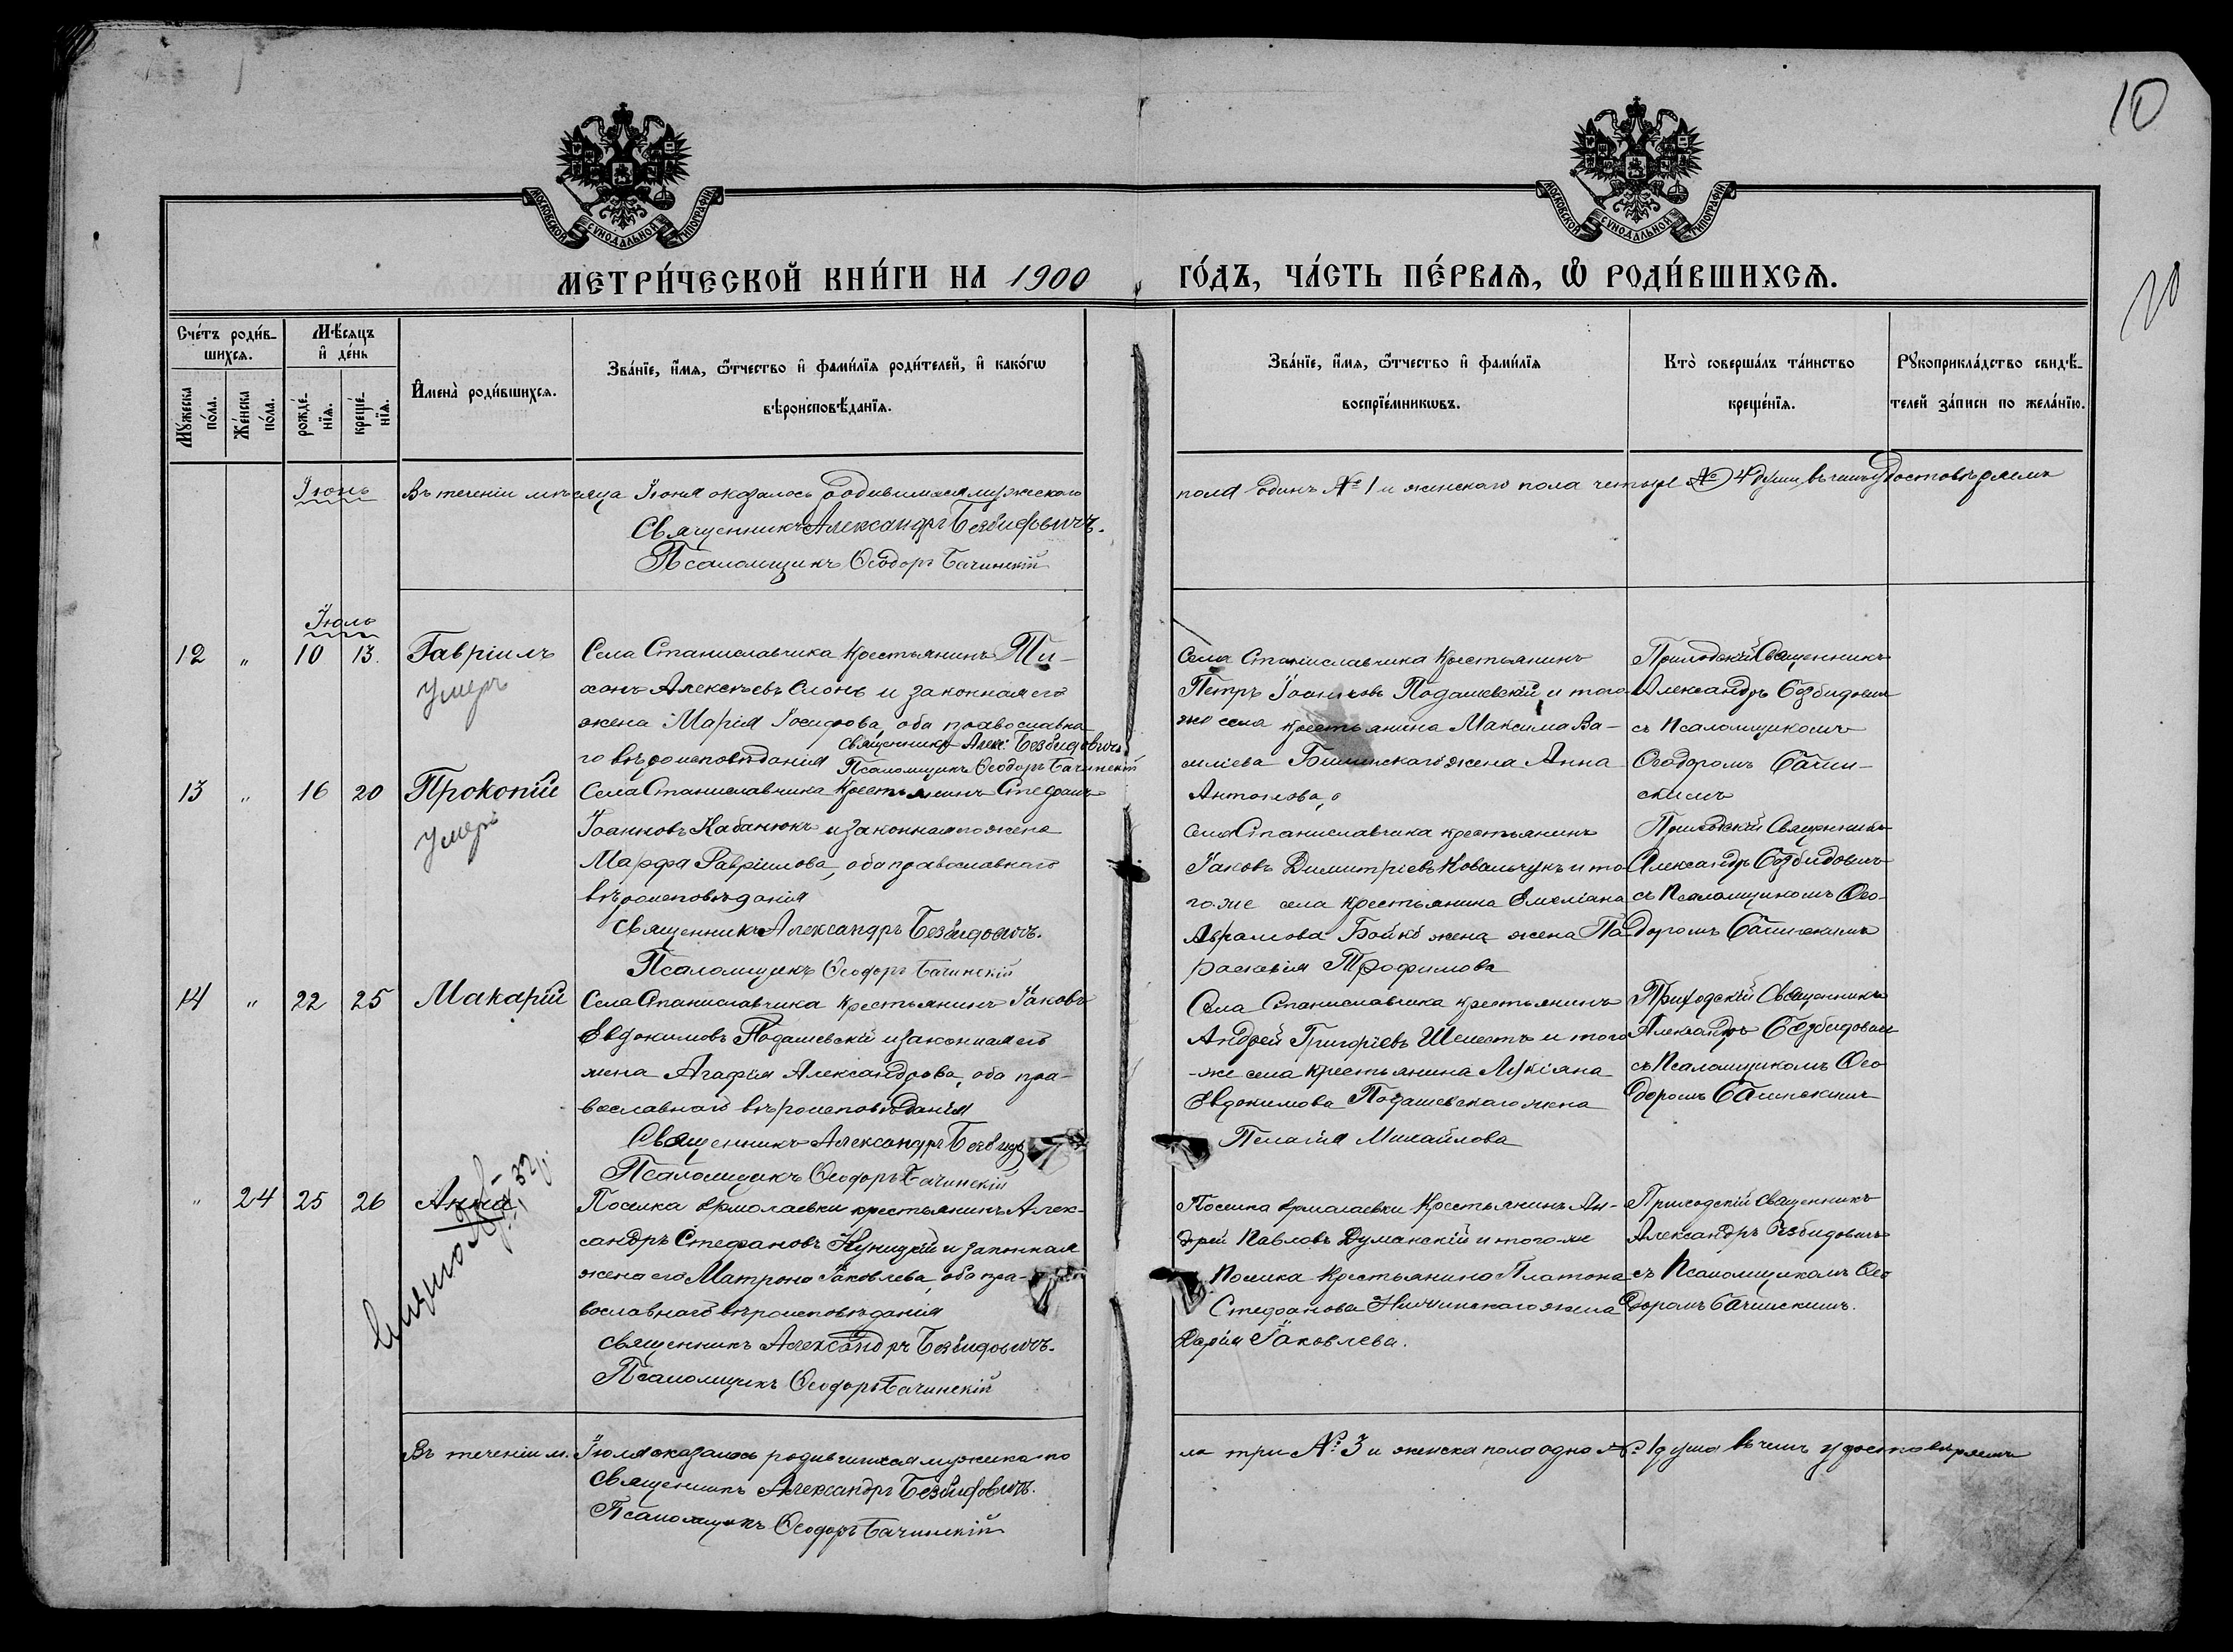 10
20
МОСКОВСКОЙ СУНОДАЛЬНОЙ ТИПОГРАФІИ
МОСКОВСКОЙ СУНОДАЛЬНОЙ ТИПОГРАФІИ
МЕТРИ́ЧЕСКОЙ КНИ́ГИ НА 1900 ГО́ДЪ, ЧА́СТЬ ПЕ́РВАѦ, Ѡ҆ РОДИ́ВШИХСѦ.
Сче́тъ роди́в-
шихсѧ.
Мꙋ́жеска
по́ла.
Же́нска
по́ла.
Мѣ́сѧцъ
и҆ де́нь
рожде́-
нїѧ.
креще́-
нїѧ.
И҆мена̀ роди́вшихсѧ.
Зва́нїе, и҆́мѧ, ѻ҆́тчество и҆ фами́лїѧ роди́телей, и҆ како́гѡ
вѣроисповѣ́данїѧ.
Зва́нїе, и҆́мѧ, ѻ҆́тчество и҆ фами́лїѧ
воспрїе́мникѡвъ.
Кто̀ соверша́лъ та́инство
креще́нїѧ.
Рꙋкоприкла́дство свидѣ́-
телей за́писи по жела́нїю.
Іюнь
Въ теченіи мѣсяца Іюня оказалось родившихся мужескаго
пола одинъ № 1 и женскаго пола четыре № 4 души, въ чемъ удостовѣряемъ
Священникъ Александръ Безвидовичъ.
Псаломщикъ Ѳеодоръ Бачинскій
Іюль
12 " 10 13. Гавріилъ
Умеръ
Села Станиславчика Крестьянинъ Ти-
хонъ Алексѣевъ Слонь и законная его
жена Марія Іосифова, оба православна-
го вѣроисповѣданія
Священникъ Алек: Безвидовичъ
Псаломщикъ Ѳеодоръ Бачинскій
Села Станиславчика Крестьянинъ
Петръ Іоанновъ Подашевскій, и того
же села крестьянина Максима Ва-
силіева Бинскаго жена Анна
Антонова,
Приходскій Священникъ
Александръ Безвидович
съ Псаломщикомъ
Ѳеодоромъ Бачин-
скимъ
13 " 16 20 Прокопій
Умеръ
Села Станиславчика Крестьянинъ Стефанъ
Іоанновъ Кабанюкъ и законная его жена
Марфа Гавріилова, оба православнаго
вѣроисповѣданія
Священникъ Александръ Безвидовичъ.
Псаломщикъ Ѳеодоръ Бачинскій
Села Станиславчика крестьянинъ
Іаковъ Димитріевъ Ковальчукъ и то-
го-же села крестьянина Емеліана
Аврамова Бойко жена жена Па-
раскевія Трофимова
Приходскій Священникъ
Александръ Безвидовичъ
съ Псаломщикомъ Ѳео-
доромъ Бачинскимъ
14 " 22 25 Макарій
Села Станиславчика Крестьянинъ Іаковъ
Евдокимовъ Подашевскій и законная его
жена Агафія Александрова, оба пра-
вославнаго вѣроисповѣданія
Священникъ Александръ Безвидо
Псаломщикъ Ѳеодоръ Бачинскій
Села Станиславчика крестьянинъ
Андрей Григоріевъ Шелестъ и того
-же села крестьянина Лукіана
Евдокимова Подашевскаго жена
Пелагія Михайлова
Приходскій Священникъ
Александръ Безбидович
съ Псаломщикомъ Ѳео
доромъ Бачинскимъ
" 24 25 26 Анна
Поселка Ермолаевки крестьянинъ Алек-
сандръ Стефановъ Куницкій и законная
жена его Матрона Іаковлева, оба пра-
вославнаго вѣроисповѣданія
Священникъ Александръ Безвидовичъ.
Псаломщикъ Ѳеодоръ Бачинскій
Поселка Ермолаевки Крестьянинъ Ан-
дрей Павловъ Думанскій и того-же
Поселка Крестьянина Платона
Стефанова жена
Дарія Іаковлева.
Приходскій Священникъ
Александръ Безбидовичъ
съ Псаломщикомъ Ѳео
доромъ Бачинскимъ.
Въ теченіи м. Іюля оказалось родившихся мужска по-
ла три № 3 и женска пола одна № 1 душа въ чемъ удостовѣряемъ
Священникъ Александръ Безвидовичъ.
Псаломщикъ Ѳеодоръ Бачинскій